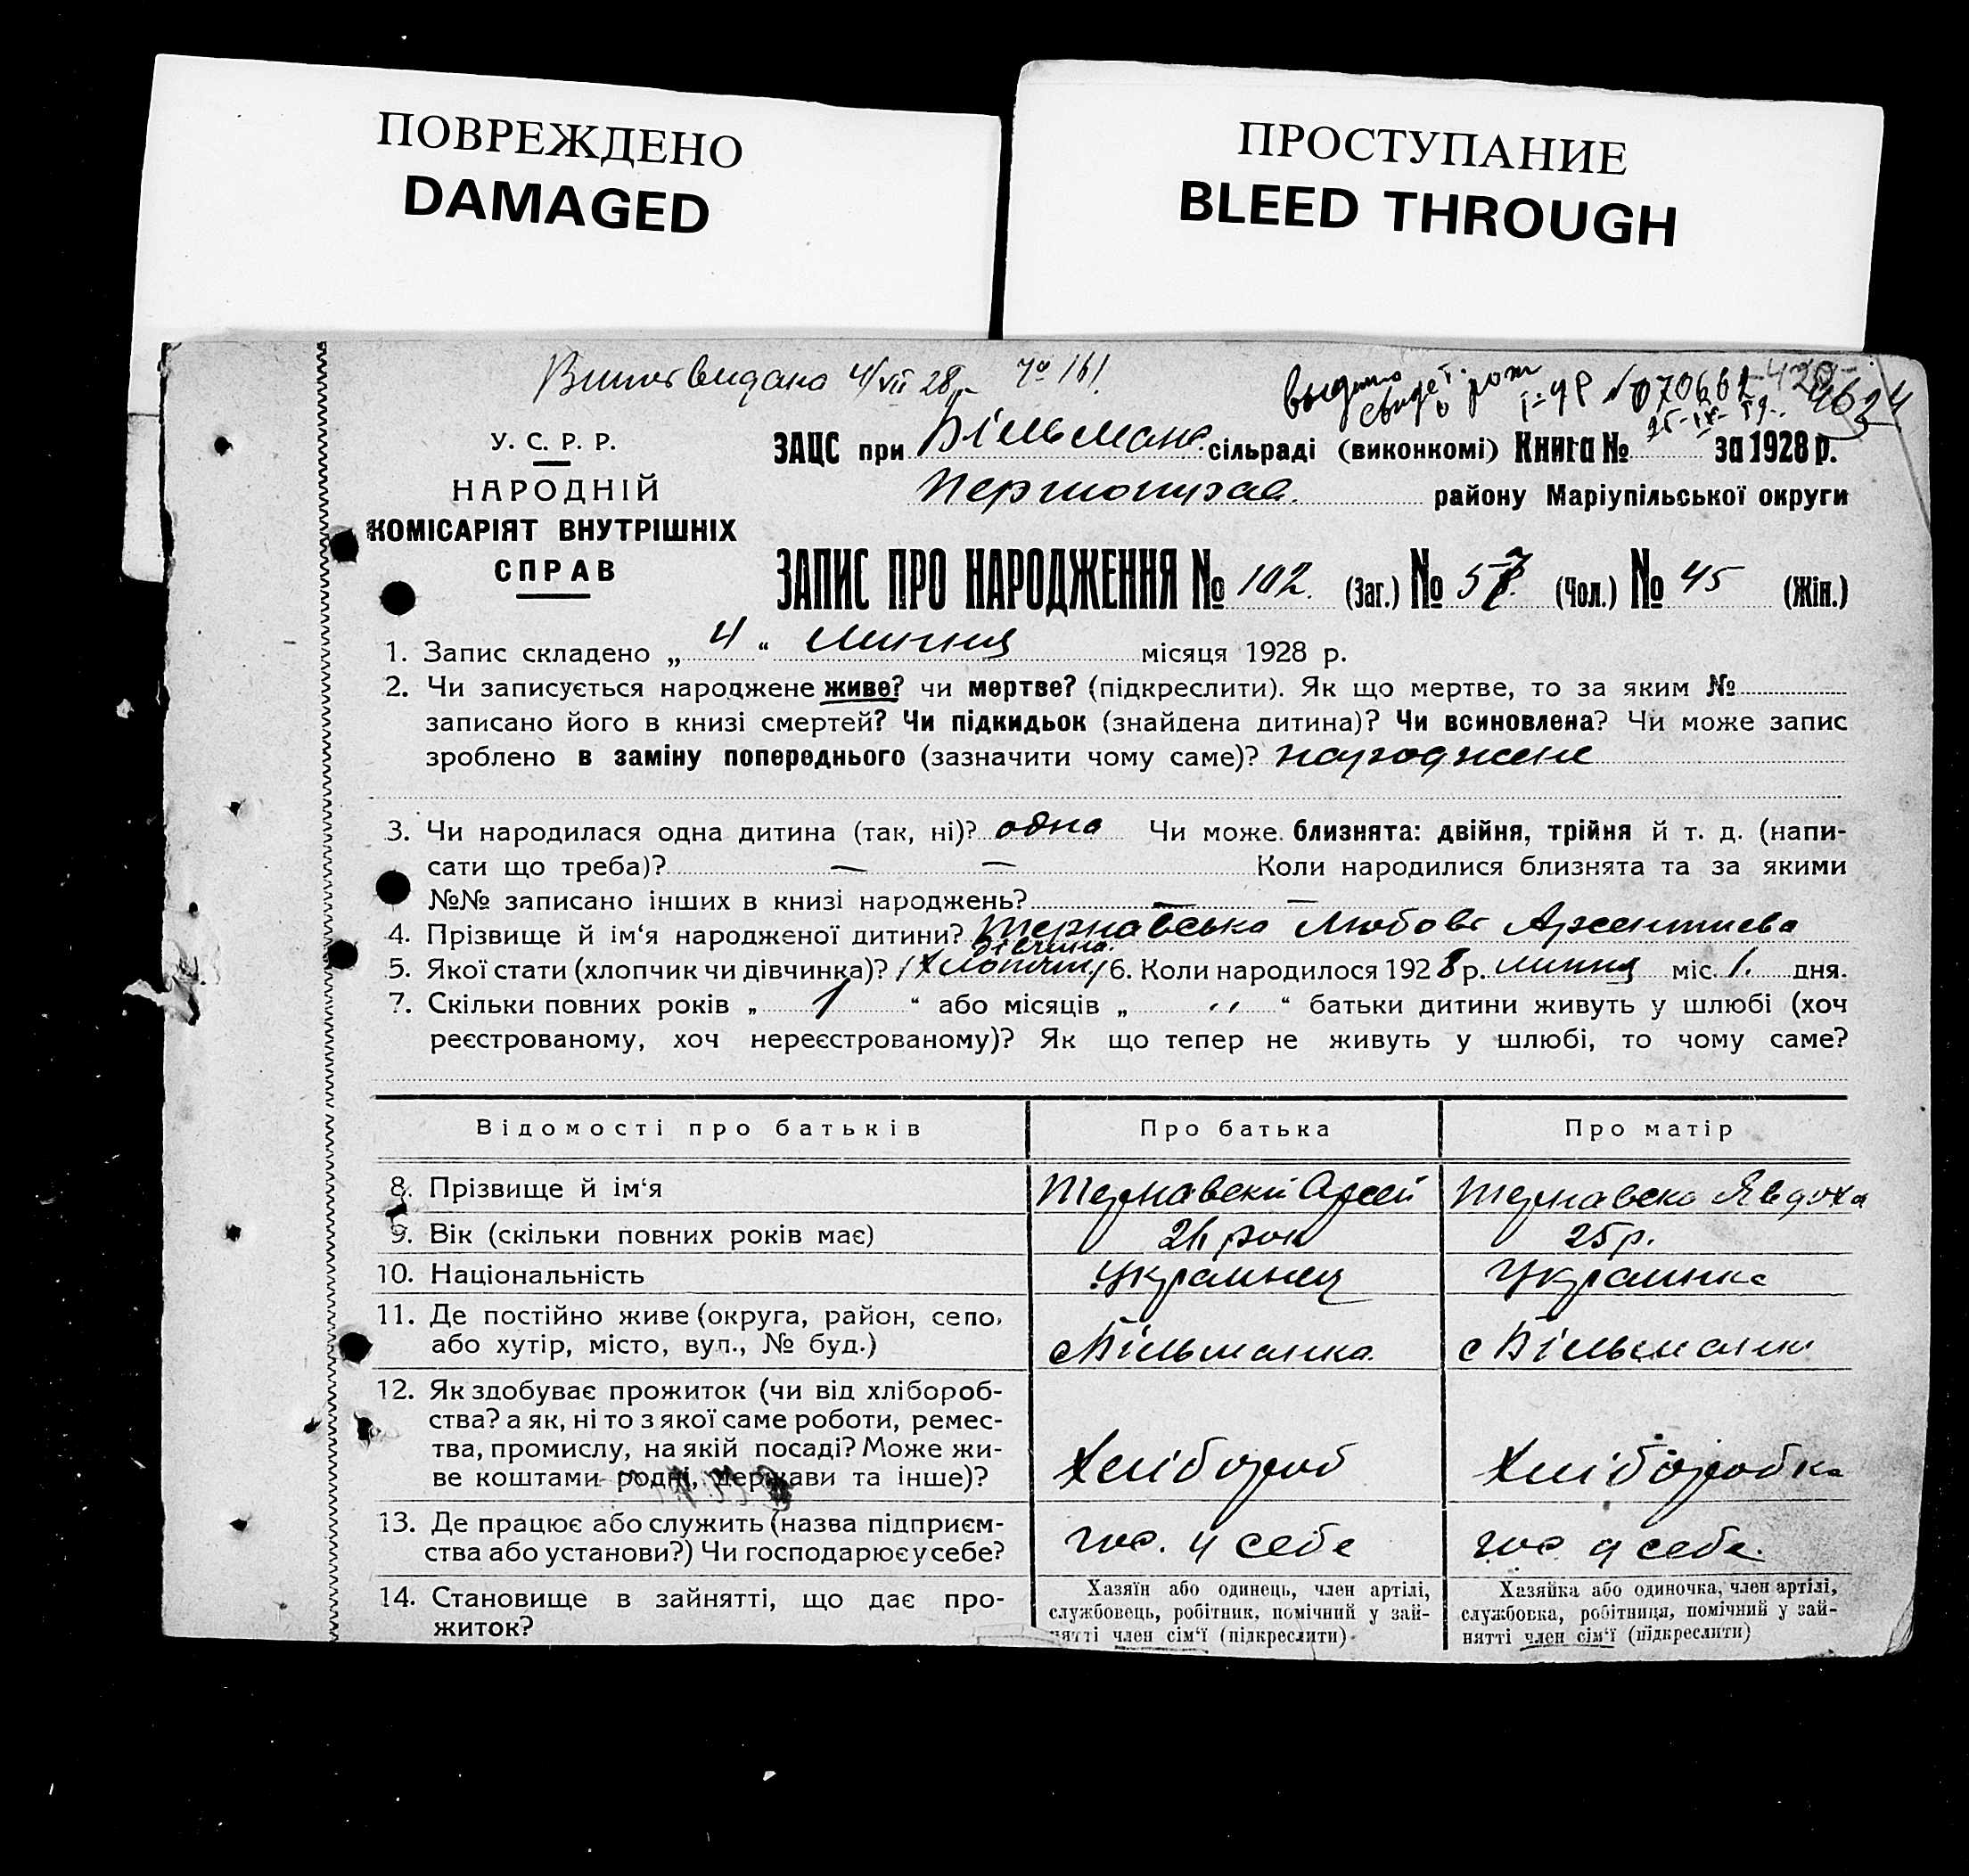 ПОВРЕЖДЕНО
DAMAGED
ПРОСТУПАНИЕ
BLEED THROUGH
видано 4/VII 28 р № 161
выдано свидет. о рож I-ЯР № 070662
25-IX-59.
4624
У. С. Р. Р.
НАРОДНІЙ
КОМІСАРІЯТ ВНУТРІШНІХ
СПРАВ
ЗАЦС при Більманс. сільраді (виконкомі) Книга № за 1928 р.
району Маріупільської округи
ЗАПИС ПРО НАРОДЖЕННЯ № 102. (Заг.) № 57. (Чол.) № 45 (Жін.)
1. Запис складено „ 4 “ липня місяця 1928 р.
2. Чи записується народжене живе? чи мертве? (підкреслити). Як що мертве, то за яким №
записано його в книзі смертей? Чи підкидьок (знайдена дитина)? Чи всиновлена? Чи може запис
зроблено в заміну попереднього (зазначити чому саме)? народжене
3. Чи народилася одна дитина (так, ні)? одна Чи може близнята: двійня, трійня й т. д. (напи-
сати що треба)? — — Коли народилися близнята та за якими
№№ записано інших в книзі народжень? — —
4. Прізвище й ім‘я народженої дитини? Тернавська Любовь Арсентиева
дівчина.
5. Якої стати (хлопчик чи дівчинка)? (Хлопчик) 6. Коли народилося 1928 р. липня міс. 1. дня.
7. Скільки повних років „ 1 “ або місяців „ “ батьки дитини живуть у шлюбі (хоч
реєстрованому, хоч нереєстрованому)? Як що тепер не живуть у шлюбі, то чому саме?
Відомості про батьків Про батька Про матір
8. Прізвище й ім‘я Тернавский Арсей Тернавска Явдоха
9. Вік (скільки повних років має) рок 25 р.
10. Національність Украинец Украинка
11. Де постійно живе (округа, район, село,
або хутір, місто, вул., № буд.) с Більманка. с Більманка
12. Як здобуває прожиток (чи від хлібороб-
ства? а як, ні то з якої саме роботи, ремес-
тва, промислу, на якій посаді? Може жи-
ве коштами родні, держави та інше)? Хлібороб Хліборобка
13. Де працює або служить (назва підприєм-
ства або установи?) Чи господарює у себе? гос. у себе гос. у себе.
14. Становище в зайнятті, що дає про-
житок?
Хазяїн або одинець, член артілі,
службовець, робітник, помічний у зай-
нятті член сім‘ї (підкреслити)
Хазяйка або одиночка, член артілі,
службовка, робітниця, помічний у зай-
нятті член сім‘ї (підкреслити)